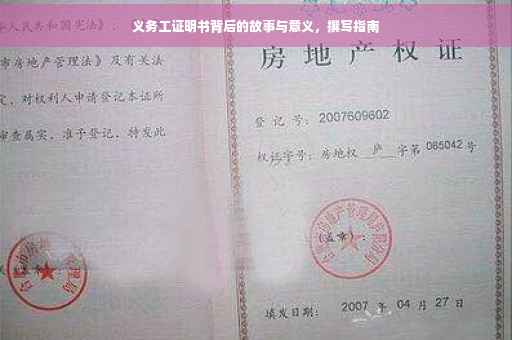 义务工证明书背后的故事与意义，撰写指南
人民共和国宪法》
市房地产管理法》及有关法
定，对权利人申请登记本证所
审查属实，准予登记，特发此
房地产权证
登记号：2007609602
权证字号：房地权 庐 字第 085042 号
(盖章)：
填发日期：2007 年 04 月 27 日